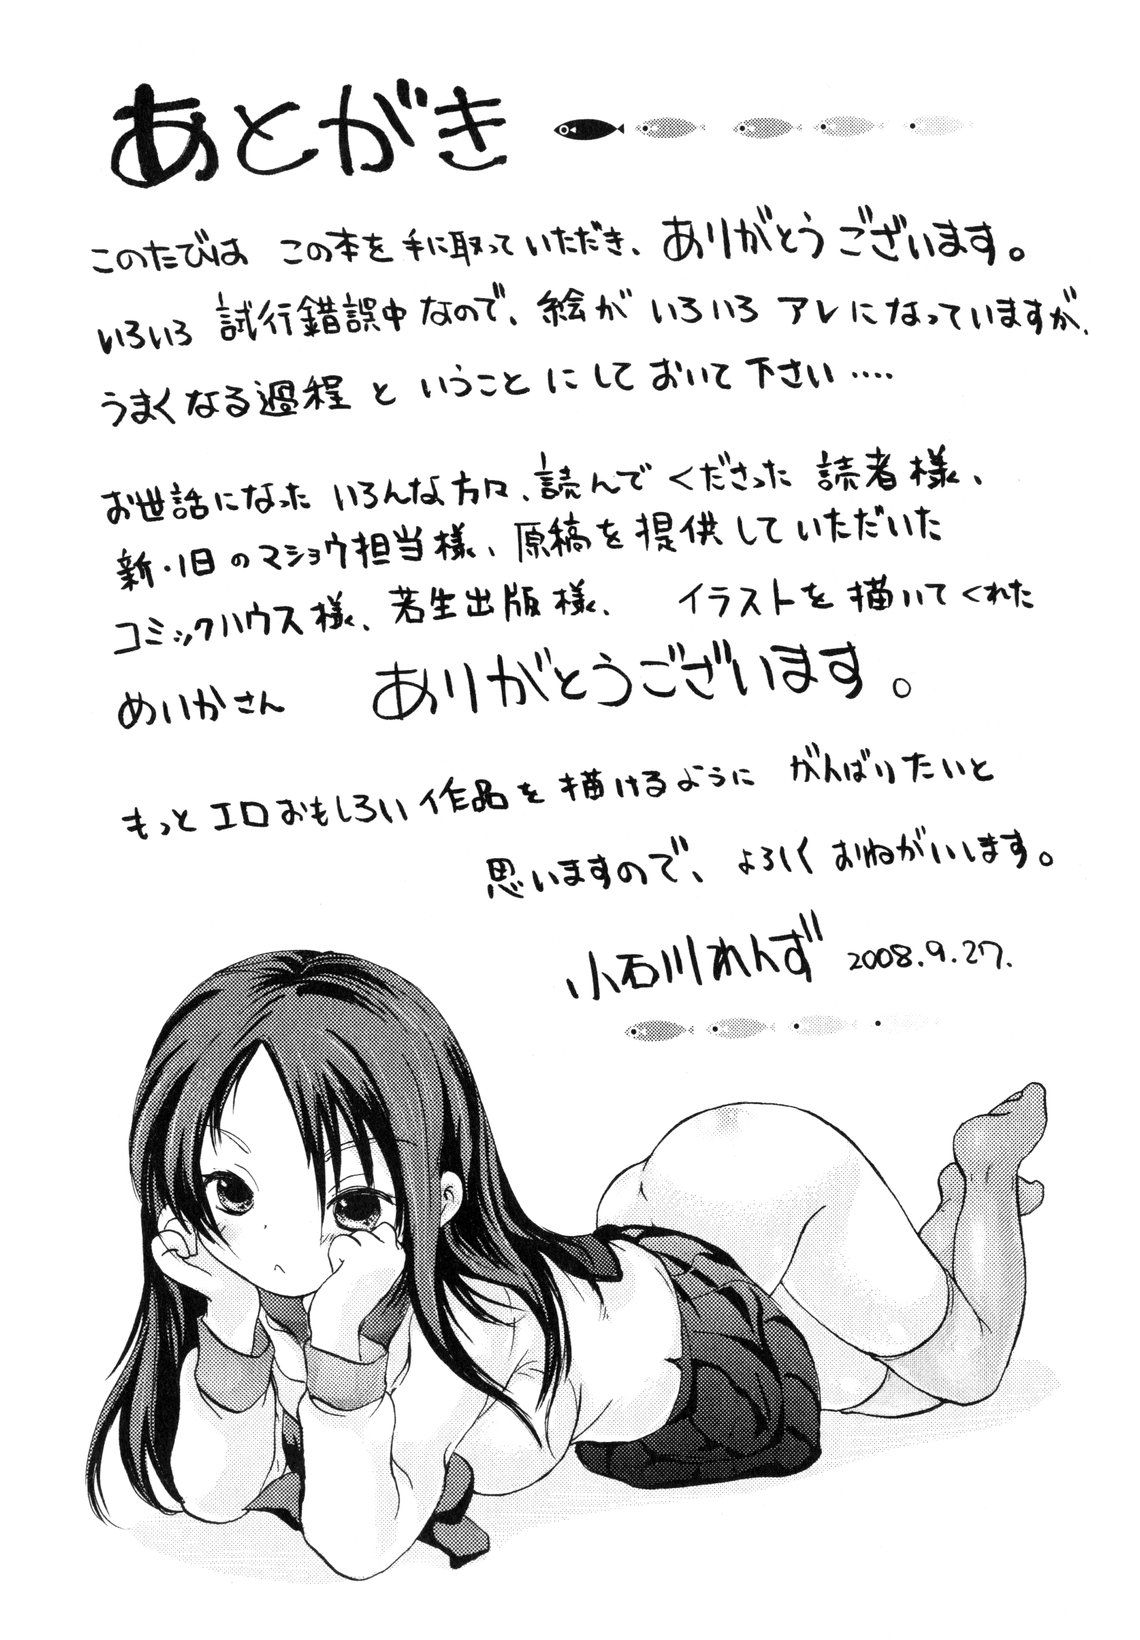 あとがき
このたびは この本を手に取っていただき、ありがとうございます。
いろいろ 試行錯誤中なので、絵が いろいろ アレになっていますが、
うまくなる過程 と いうこと にして おいて 下さい‥‥
お世話になった いろんな方々、読んで くださった 読者様、
新・旧のマショウ担当様、原稿を提供していただいた
コミックハウス様、若生出版様、 イラストを描いてくれた
めいかさん ありがとうございます。
もっとエロおもしろい作品を描けるように がんばりたいと
思いますので、よろしく おねがいします。
小石川れんず 2008.9.27.